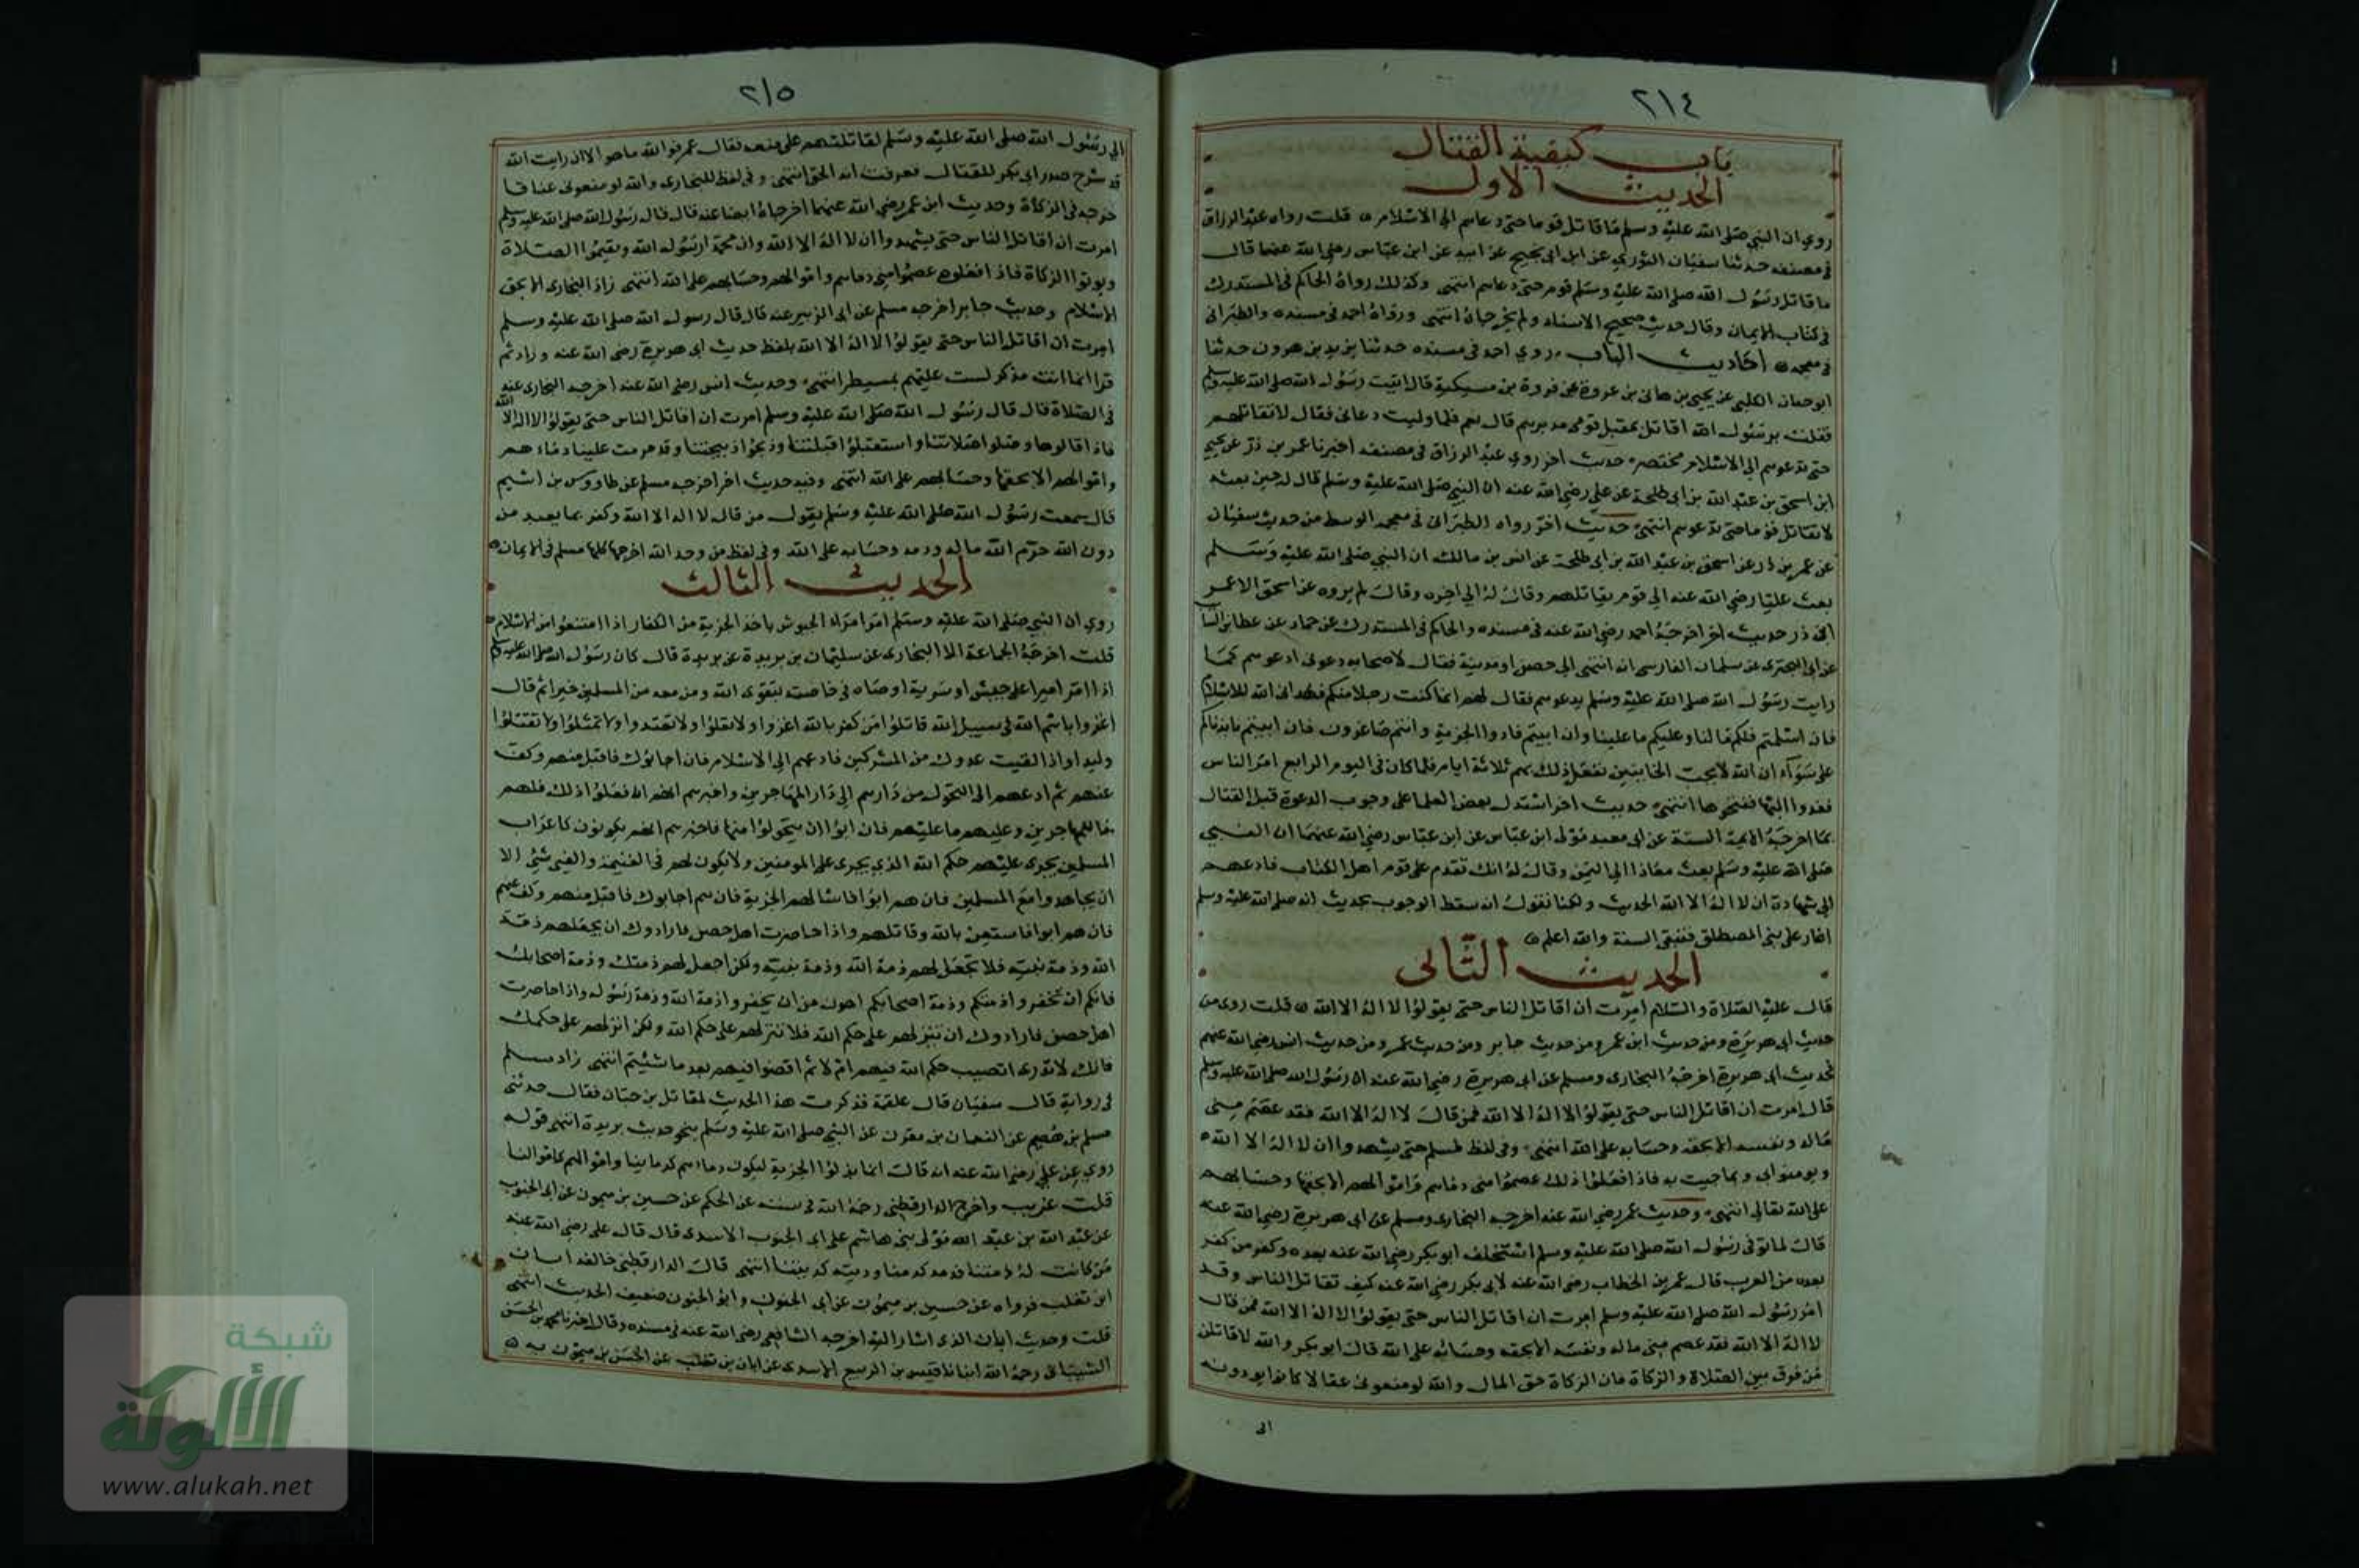 ٢١٤
باب كيفية القتال
الحديث الاول
روي ان النبي صلى الله عليه وسلم ما قاتل قوما حتى دعاهم الى الاسلام قلت رواه عبد الرزاق
في مصنفه حدثنا سفيان الثوري عن ابن ابي نجيح عن ابيه عن ابن عباس رضي الله عنهما قال
ما قاتل رسول الله صلى الله عليه وسلم قوم حتى دعاهم انتهى وكذلك رواه الحاكم في المستدرك
في كتاب الايمان وقال حديث صحيح الاسناد ولم يخرجاه انتهى ورواه احمد في مسنده والطبراني
في معجمه احاديث الباب روي احمد في مسنده حدثنا يزيد بن هرون حدثنا
ابو الكلبي عن يحيى بن هاني بن عروة عن فروة بن مسيكة قال اتيت رسول الله صلى الله عليه وسلم
فقلت يرسول الله اقاتل بمقبل قومي مدبرهم قال نعم فلما وليت دعاني فقال لا تقاتلهم
حتى تدعوهم الى الاسلام مختصر حديث اخر روي عبد الرزاق في مصنفه اخبرنا عمر بن ذر عن يحيى
ابن اسحق بن عبد الله بن ابي طلحة عن علي رضي الله عنه ان النبي صلى الله عليه وسلم قال له حين بعثه
لا تقاتل قوما حتى تدعوهم انتهى حديث اخر رواه الطبراني في معجمه الوسط من حديث سفيان
عن عمر بن ذر عن اسحق بن عبد الله بن ابي طلحة عن انس بن مالك ان النبي صلى الله عليه وسلم
بعث عليا رضي الله عنه الى قوم يقاتلهم وقال له الى اخره وقال لم يروه عن اسحق الا عمر
ابن ذر حديث اخر اخرجه احمد رضي الله عنه في مسنده والحاكم في المستدرك عن حماد عن عطا بن السا
عن ابي البختري عن سلمان الفارسي انه انتهى الى حصن او مدينة فقال لاصحابه دعوني ادعوهم كما
رايت رسول الله صلى الله عليه وسلم يدعوهم فقال لهم انما كنت رجلا منكم فهداني الله للاسلام
فان اسلمتم فلكم ما لنا وعليكم ما علينا وان ابيتم فادوا الجزية وانتم صاغرون فان ابيتم نابذناكم
على سواء ان الله لا يحب الخاينين نفعل ذلك بهم ثلاثة ايام فلما كان في اليوم الرابع امر الناس
فغدوا اليها ففتحوها انتهى حديث اخر استدل بعض العلما على وجوب الدعوة قبل القتال
بما اخرجه الايمة الستة عن ابي معبد مولى ابن عباس عن ابن عباس رضي الله عنهما ان النبي
صلى الله عليه وسلم بعث معاذا الى اليمن وقال له انك تقدم على قوم اهل الكتاب فادعهم
الى شهادة ان لا اله الا الله الحديث ولكنا نقول انه سقط الوجوب بحديث انه صلى الله عليه وسلم
اغار على بني المصطلق فتبقى السنة والله اعلم
الحديث الثاني
قال عليه الصلاة والسلام امرت ان اقاتل الناس حتى يقولوا لا اله الا الله قلت روى من
حديث ابي هريرة ومن حديث ابن عمر ومن حديث جابر ومن حديث عمر ومن حديث انس رضي الله عنهم
فحديث ابي هريرة اخرجه البخاري ومسلم عن ابي هريرة رضي الله عنه ان رسول الله صلى الله عليه وسلم
قال امرت ان اقاتل الناس حتى يقولوا لا اله الا الله فمن قال لا اله الا الله فقد عصم مني
ماله ونفسه الا بحقه وحسابه على الله انتهى وفي لفظ لمسلم حتى يشهدوا ان لا اله الا الله
ويومنوا بي وبما جيت به فاذا فعلوا ذلك عصموا مني دماهم واموالهم الا بحقها وحسابهم
على الله تعالى انتهى وحديث عمر رضي الله عنه اخرجه البخاري ومسلم عن ابي هريرة رضي الله عنه
قال لما توفي رسول الله صلى الله عليه وسلم استخلف ابو بكر رضي الله عنه بعده وكفر من كفر
بعده من العرب قال عمر بن الخطاب رضي الله عنه لابي بكر رضي الله عنه كيف تقاتل الناس وقد
امر رسول الله صلى الله عليه وسلم امرت ان اقاتل الناس حتى يقولوا لا اله الا الله فمن قال
لا اله الا الله فقد عصم مني ماله ونفسه الا بحقه وحسابه على الله قال ابو بكر والله لاقاتلن
من فرق بين الصلاة والزكاة فان الزكاة حق المال والله لو منعوني عقالا كانوا يودونه
الى
٢١٥
الى رسول الله صلى الله عليه وسلم لقاتلتهم على منعه فقال عمر فوالله ما هو الا ان رايت الله
قد شرح صدر ابي بكر للقتال فعرفت انه الحق انتهى وفي لفظ للبخاري والله لو منعوني عناقا
خرجه في الزكاة وحديث ابن عمر رضي الله عنهما اخرجاه ايضا عنه قال قال رسول الله صلى الله عليه وسلم
امرت ان اقاتل الناس حتى يشهدوا ان لا اله الا الله وان محمدا رسول الله ويقيموا الصلاة
ويوتوا الزكاة فاذا فعلوه عصموا مني دماهم واموالهم وحسابهم على الله انتهى زاد البخاري الا بحق
الاسلام وحديث جابر اخرجه مسلم عن ابي الزبير عنه قال قال رسول الله صلى الله عليه وسلم
امرت ان اقاتل الناس حتى يقولوا لا اله الا الله بلفظ حديث ابي هريرة رضي الله عنه وزاد ثم
قرا انما انت مذكر لست عليهم بمسيطر انتهى وحديث انس رضي الله عنه اخرجه البخاري عنه
في الصلاة قال قال رسول الله صلى الله عليه وسلم امرت ان اقاتل الناس حتى يقولوا لا اله الا الله
فاذا قالوها وصلوا صلاتنا واستقبلوا قبلتنا وذبحوا ذبيحتنا وقد حرمت علينا دماءهم
واموالهم الا بحقها وحسابهم على الله انتهى وفيه حديث اخر اخرجه مسلم عن طاروس بن اشيم
قال سمعت رسول الله صلى الله عليه وسلم يقول من قال لا اله الا الله وكفر بما يعبد من
دون الله حرم الله ماله ودمه وحسابه على الله وفي لفظ من وحد الله اخرجها كلها مسلم في الايمان
الحديث الثالث
روي ان النبي صلى الله عليه وسلم امر امراء الجيوش باخذ الجزية من الكفار اذا امتنعوا من الاسلام
قلت اخرجه الجماعة الا البخاري عن سليمان بن بريدة عن بريدة قال كان رسول الله صلى الله عليه وسلم
اذا امر اميرا على جيش او سرية اوصاه في خاصته بتقوى الله ومن معه من المسلمين خيرا ثم قال
اغزوا باسم الله في سبيل الله قاتلوا من كفر بالله اغزوا ولا تغلوا ولا تعتدوا ولا تمثلوا ولا تقتلوا
وليدا واذا لقيت عدوك من المشركين فادعهم الى الاسلام فان اجابوك فاقبل منهم وكف
عنهم ثم ادعهم الى التحول من دارهم الى دار المهاجرين واخبرهم انهم ان فعلوا ذلك فلهم
ما للمهاجرين وعليهم ما عليهم فان ابوا ان يتحولوا منها فاخبرهم انهم يكونون كاعراب
المسلمين يجرى عليهم حكم الله الذي يجرى على المومنين ولا يكون لهم في الغنيمة والفيء شيئ الا
ان يجاهدوا مع المسلمين فان هم ابوا فاسالهم الجزية فان هم اجابوك فاقبل منهم وكف عنهم
فان هم ابوا فاستعن بالله وقاتلهم واذا حاصرت اهل حصن فارادوك ان تجعل لهم ذمة
الله وذمة نبيه فلا تجعل لهم ذمة الله وذمة نبيه ولكن اجعل لهم ذمتك وذمة اصحابك
فانكم ان تخفروا ذمتكم وذمة اصحابكم اهون من ان تخفروا ذمة الله وذمة رسوله واذا حاصرت
اهل حصن فارادوك ان تنزلهم على حكم الله فلا تنزلهم على حكم الله ولكن انزلهم على حكمك
فانك لا تدري اتصيب حكم الله فيهم ام لا ثم اقضوا فيهم بعد ما شئيتم انتهى زاد مسلم
في رواية قال سفيان قال علقمة فذكرت هذا الحديث لمقاتل بن حيان فقال حدثني
مسلم بن هيصم عن النعمان بن مقرن عن النبي صلى الله عليه وسلم بنحو حديث بريدة انتهى قوله
روي عن علي رضي الله عنه انه قال انما بذلوا الجزية ليكون دماءهم كدماينا واموالهم كاموالنا
قلت غريب واخرج الدارقطني رحمه الله في سننه عن الحكم عن حسين بن ميمون عن ابي الجنوب
عن عبد الله بن عبد الله مولى بني هاشم على ابي الجنوب الاسدي قال قال علي رضي الله عنه
من كانت له ذمتنا فدمه كدمنا وديته كديتنا انتهى قال الدارقطني خالفه ابان
ابن تغلب فرواه عن حسين بن ميمون عن ابي الجنوب وابو الجنوب ضعيف الحديث انتهى
قلت وحديث ابان الذي اشار اليه اخرجه الشافعي رضي الله عنه في مسنده وقال اخبرنا محمد بن الحسن
الشيباني رحمه الله انبانا قيس بن الربيع الاسدي عن ابان بن تغلب عن الحسن بن ميمون به
شبكة
الألوكة
www.alukah.net